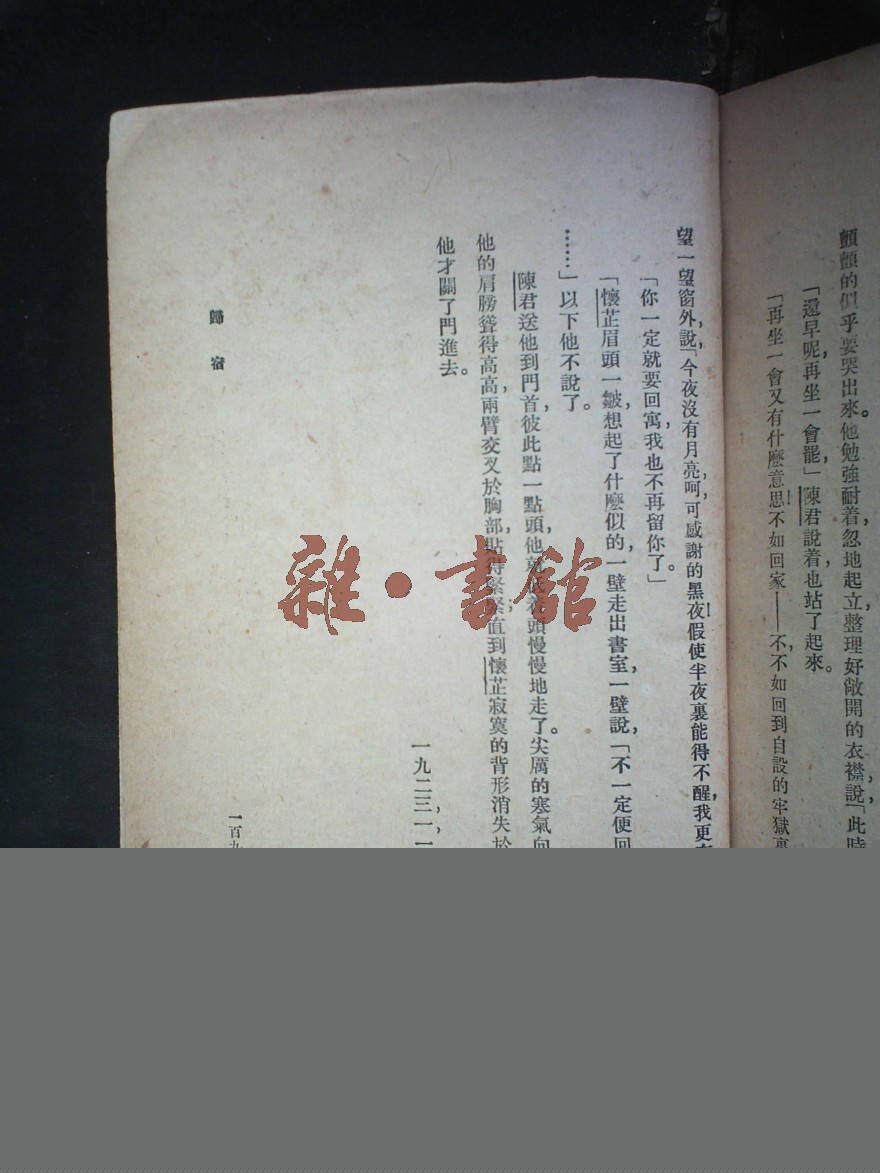 顫顫的似乎要哭出來。他勉強耐着，忽地起立，整理好敞開的衣襟，說，「此時
「還早呢，再坐一會罷，」陳君說着，也站了起來。
「再坐一會又有什麼意思！不如回家——不，不如回到自設的牢獄
望一望窗外，說，「今夜沒有月亮呵，可感謝的黑夜！假使半夜裏能得不醒，我更
「你一定就要回寓，我也不再留你了。」
「懷芷眉頭一皺，想起了什麼似的，一壁走出書室，一壁說，「不一定便回
……」以下他不說了。
陳君送他到門首，彼此點一點頭，他就低着頭慢慢地走了。尖厲的寒氣向
他的肩膀聳得高高，兩臂交叉於胸部，貼得緊緊，直到懷芷寂寞的背形消失於
他才關了門進去。
一九二三，一，一
歸宿
一百九
雜·書館